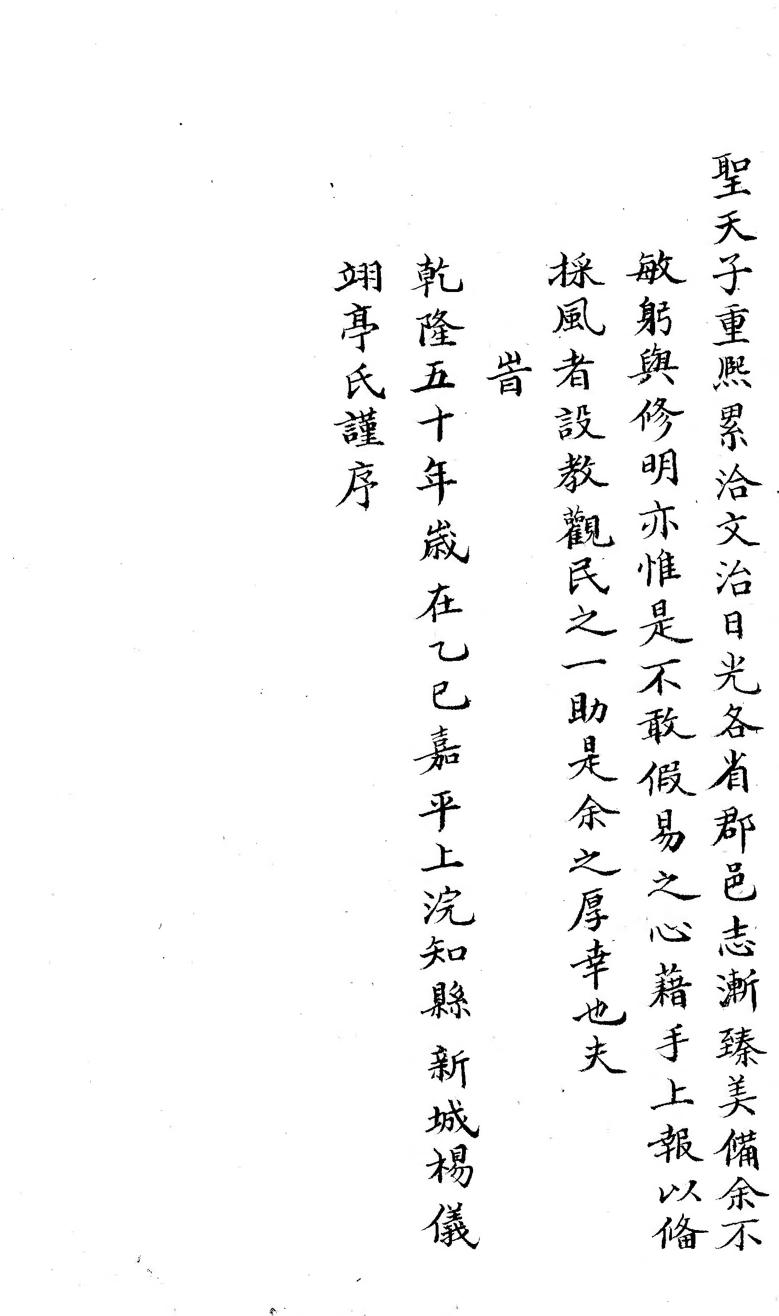 聖天子重熈累洽文治日光各省郡邑志漸臻美備余不
敏躬與修明亦惟是不敢假易之心藉手上報以俻
採風者設教觀民之一助是余之厚幸也夫
旹
乾隆五十年歲在乙巳嘉平上浣知縣新城楊儀
翊亭氏謹序